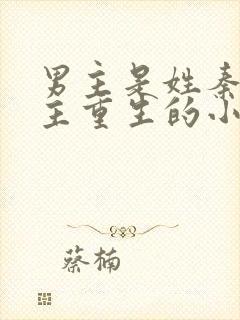 男主是姓秦
主重生的小
蔡楠